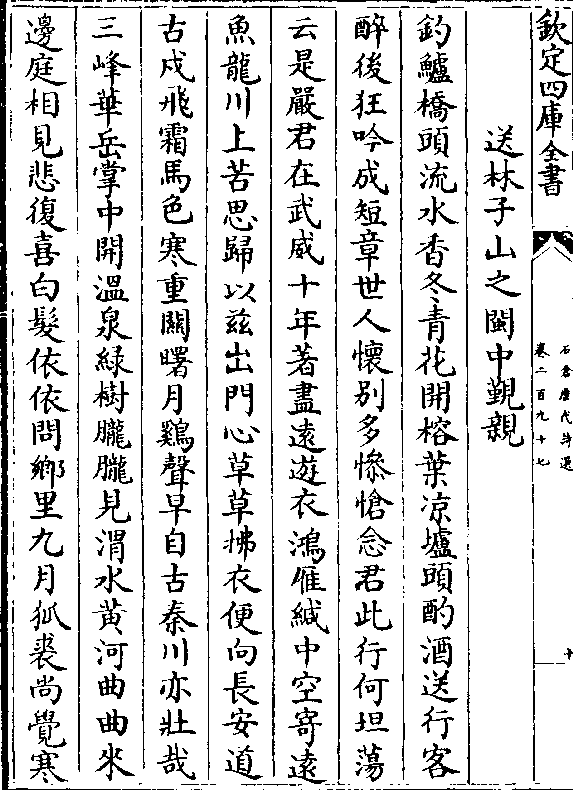 欽定四庫全書
石倉歷代詩選
卷二百九十七
十
送林子山之閩中覲親
釣鱸橋頭流水香冬青花開榕葉凉壚頭酌酒送行客
醉後狂吟成短章世人懷別多慘愴念君此行何坦蕩
云是嚴君在武威十年著盡遠遊衣鴻雁緘中空寄遠
魚龍川上苦思歸以兹出門心草草拂衣便向長安道
古戍飛霜馬色寒重關曙月鷄聲早自古秦川亦壯哉
三峰華岳掌中開溫泉綠樹朧朧見渭水黄河曲曲來
邊庭相見悲復喜白髮依依問鄉里九月狐裘尚覺寒